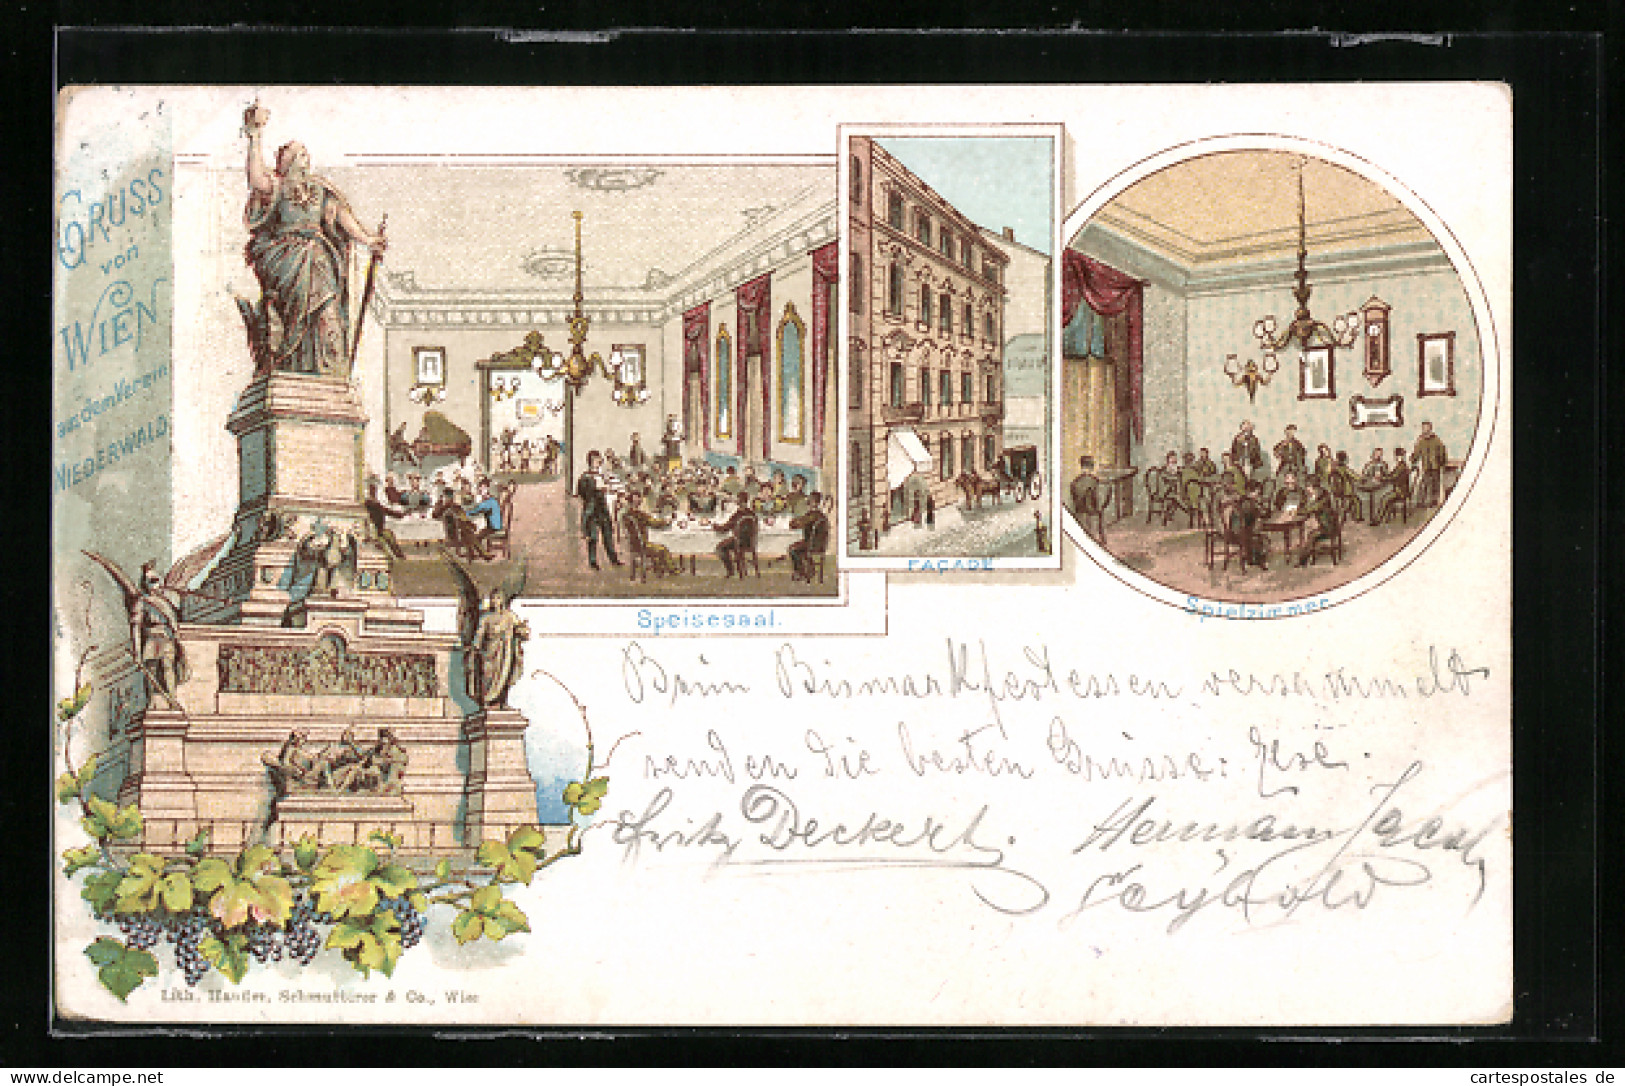 GRUSS
von
WIEN
aus dem Verein
NIEDERWALD.
FAÇADE
Speisesaal.
Spielzimmer
Beim Bismarkfestessen versammelt
senden die besten Grüsse:
Fritz Deckert. Hermann Jacob
Seybold
Lith. Schmutterer & Co., Wien
cartespostales de